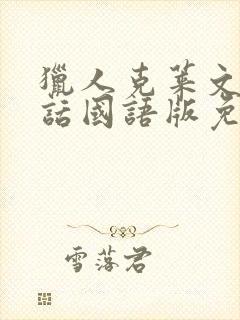 獵人克萊文
話國語版免
雪落君